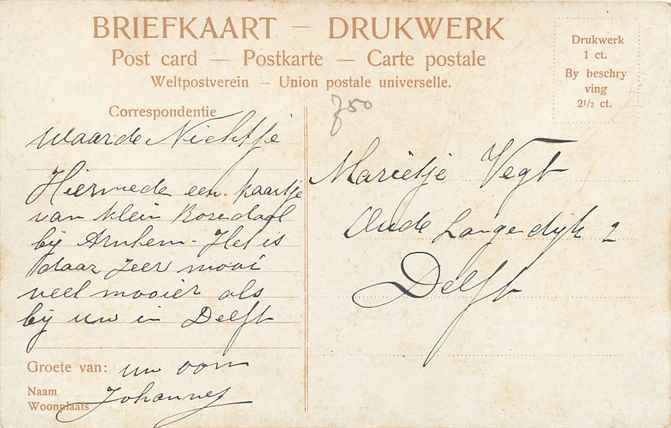 BRIEFKAART — DRUKWERK
Post card — Postkarte — Carte postale
Weltpostverein — Union postale universelle.
Drukwerk
1 ct.
By beschry
ving
2½ ct.
Correspondentie
750
Waarde Nichtje
Hiermede een kaartje
van klein Rosendaal
bij Arnhem. Het is
daar zeer mooi
veel mooier als
bij uw in Delft
Groete van: uw oom
Naam Johannes
Woonplaats
Marietje Vegt
Oude Langedijk 2
Delft